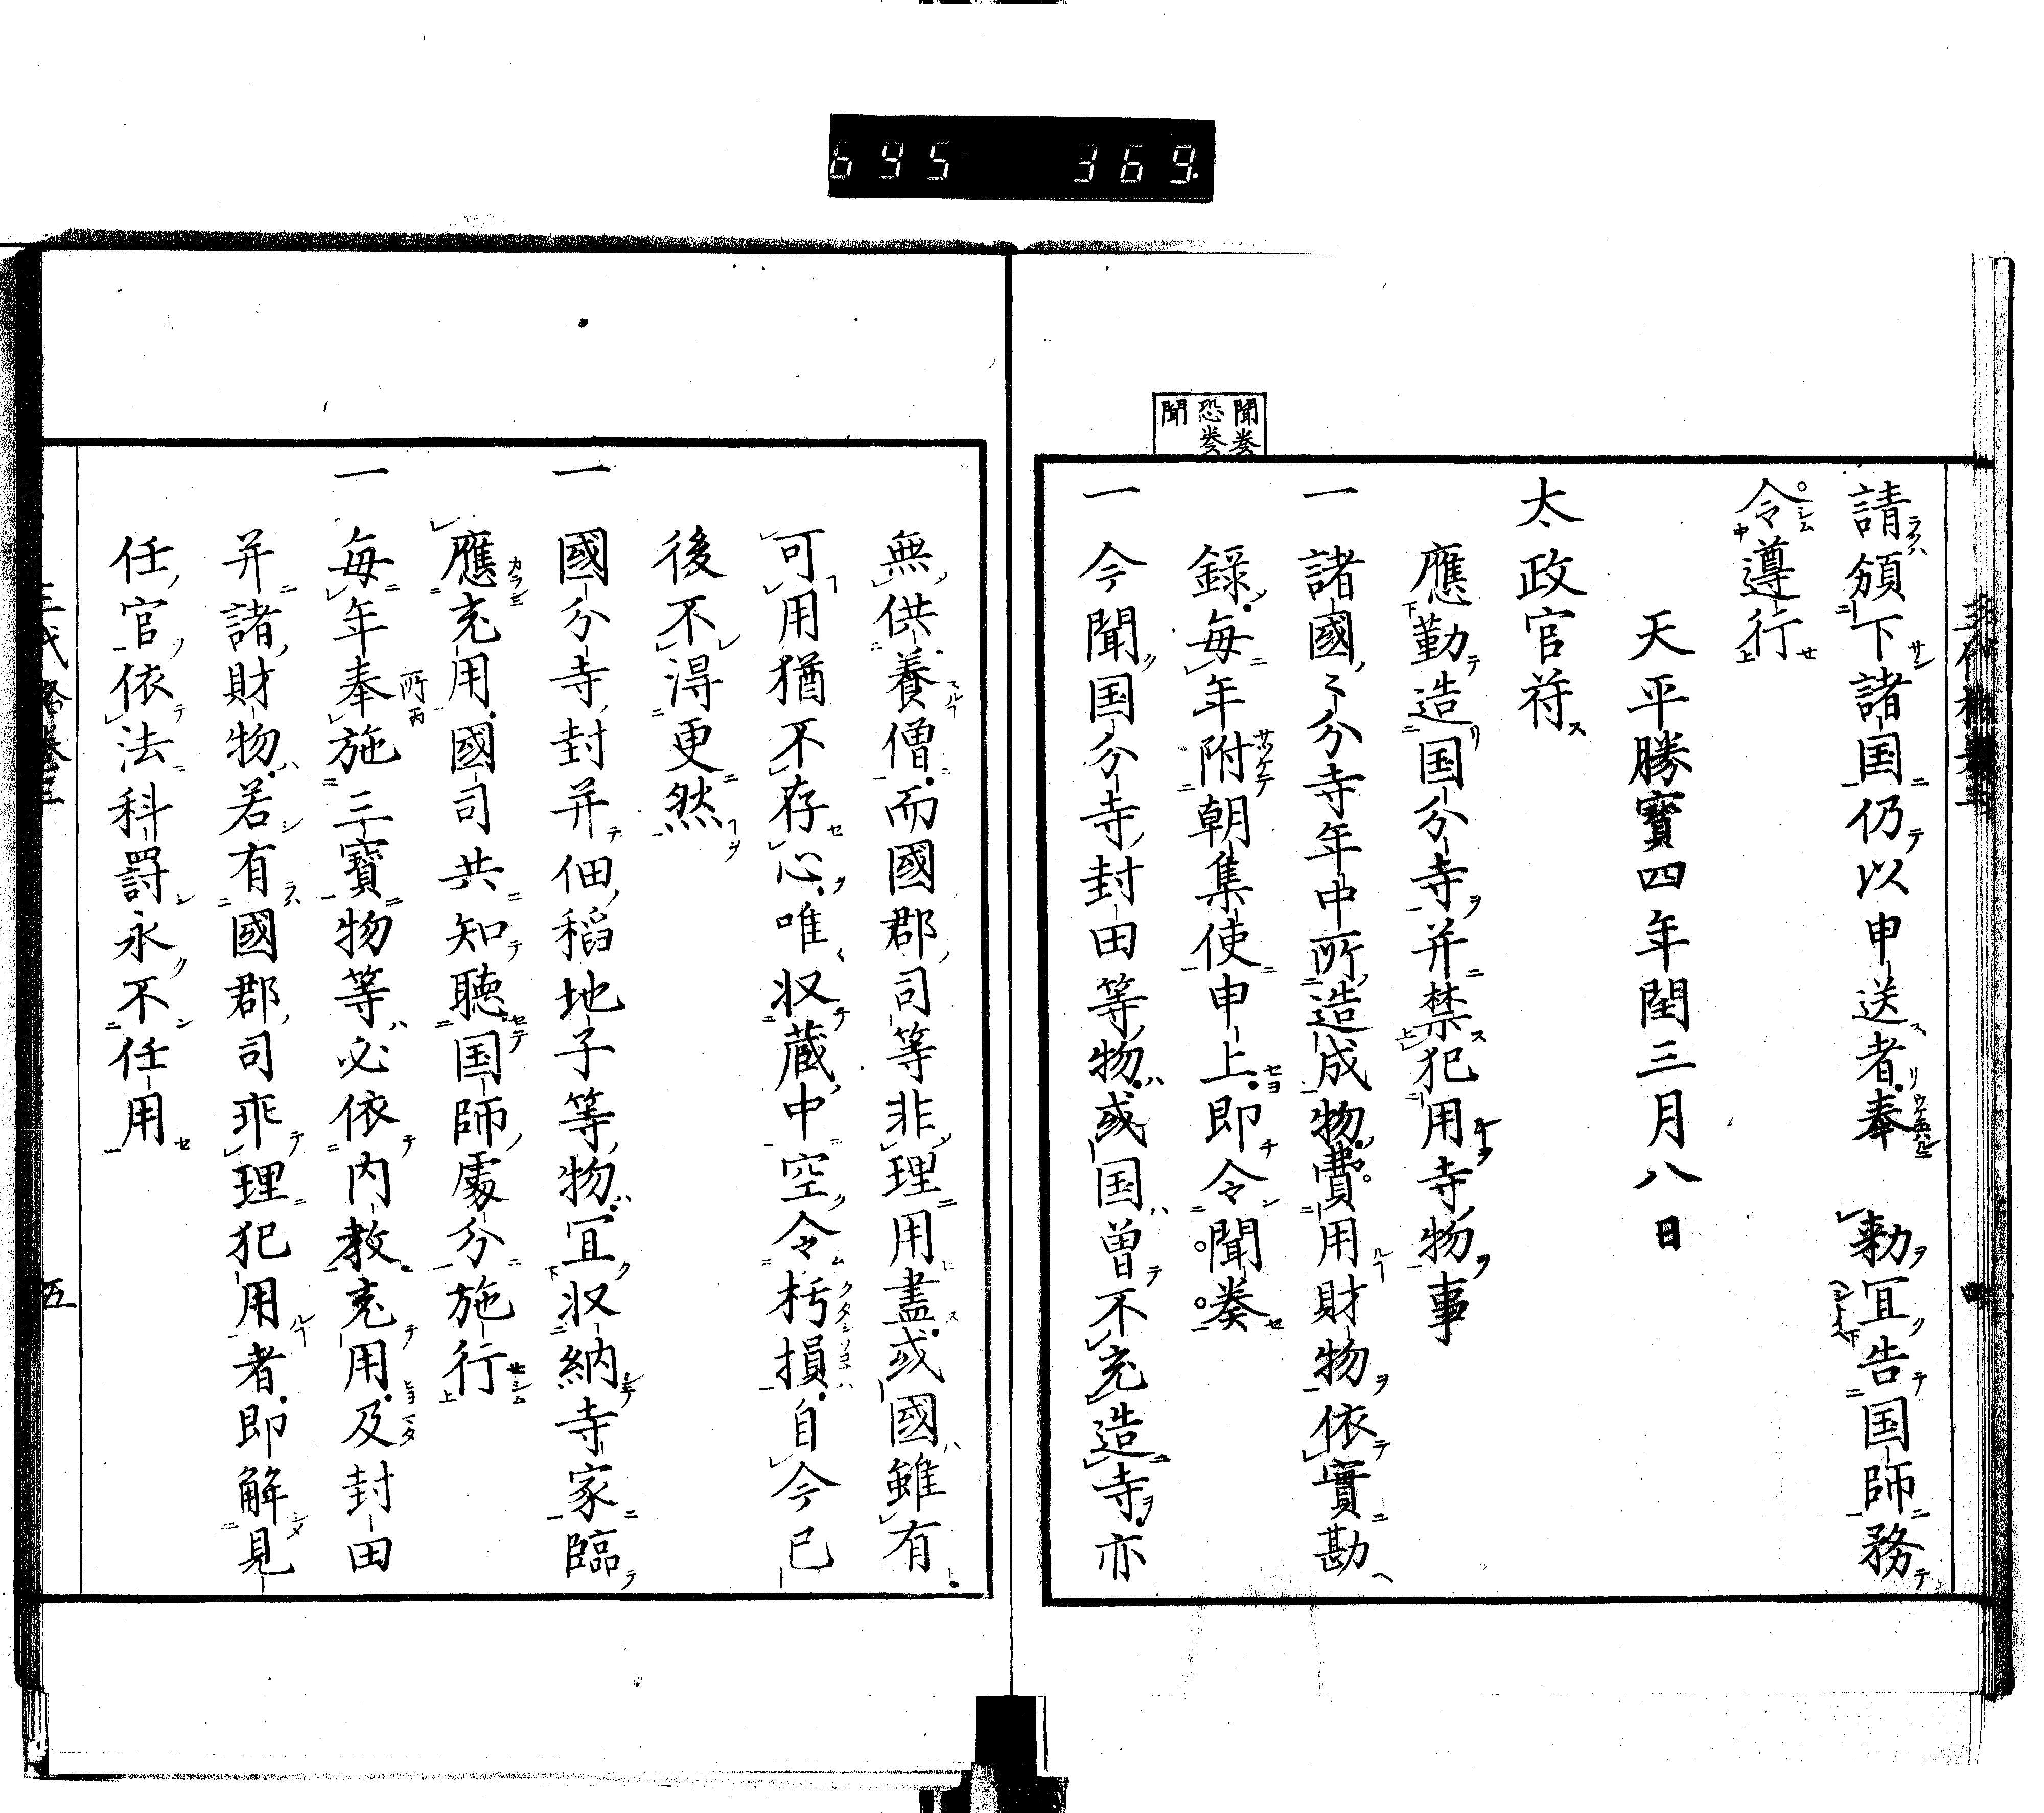 695 369.
聞奏
恐奏
聞
請頒下諸国仍以申送者奉 勅冝告国師務
令遵行
天平勝寳四年閏三月八日
太政官符
應勤造国分寺并禁犯用寺物事
一 諸國〻分寺年中所造成物費用財物依實勘
録毎年附朝集使申上即令聞奏
一 今聞国分寺封田等物或国曽不充造寺亦
無供養僧而國郡司等非理用盡或國雖有
可用猶不存心唯収蔵中空令朽損自今已
後不得更然
一 國分寺封并佃稻地子等物冝収納寺家臨
應充用國司共知聴国師處分施行
一 毎年奉施三寳物等必依内教充用及封田
所丙
并諸財物若有國郡司乖理犯用者即解見
任官依法科罸永不任用
五